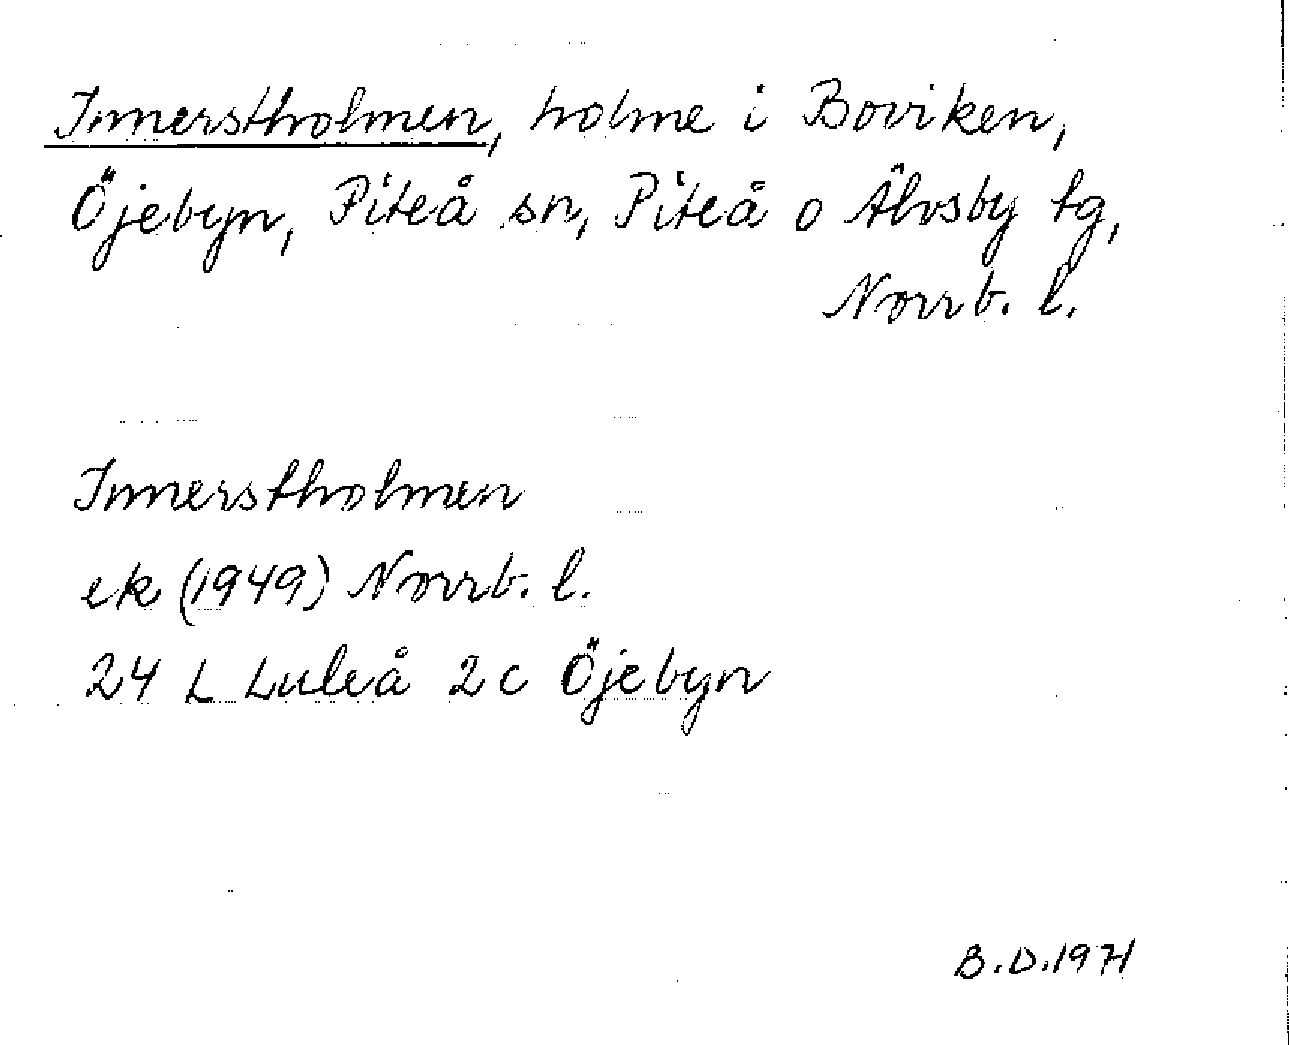 Innerstholmen, holme i Boviken,
Öjebyn, Piteå sn, Piteå o Älvsby tg,
Norrb. l.
Innerstholmen
ek (1949) Norrb. l.
24 L Luleå 2c Öjebyn
B.D.1971